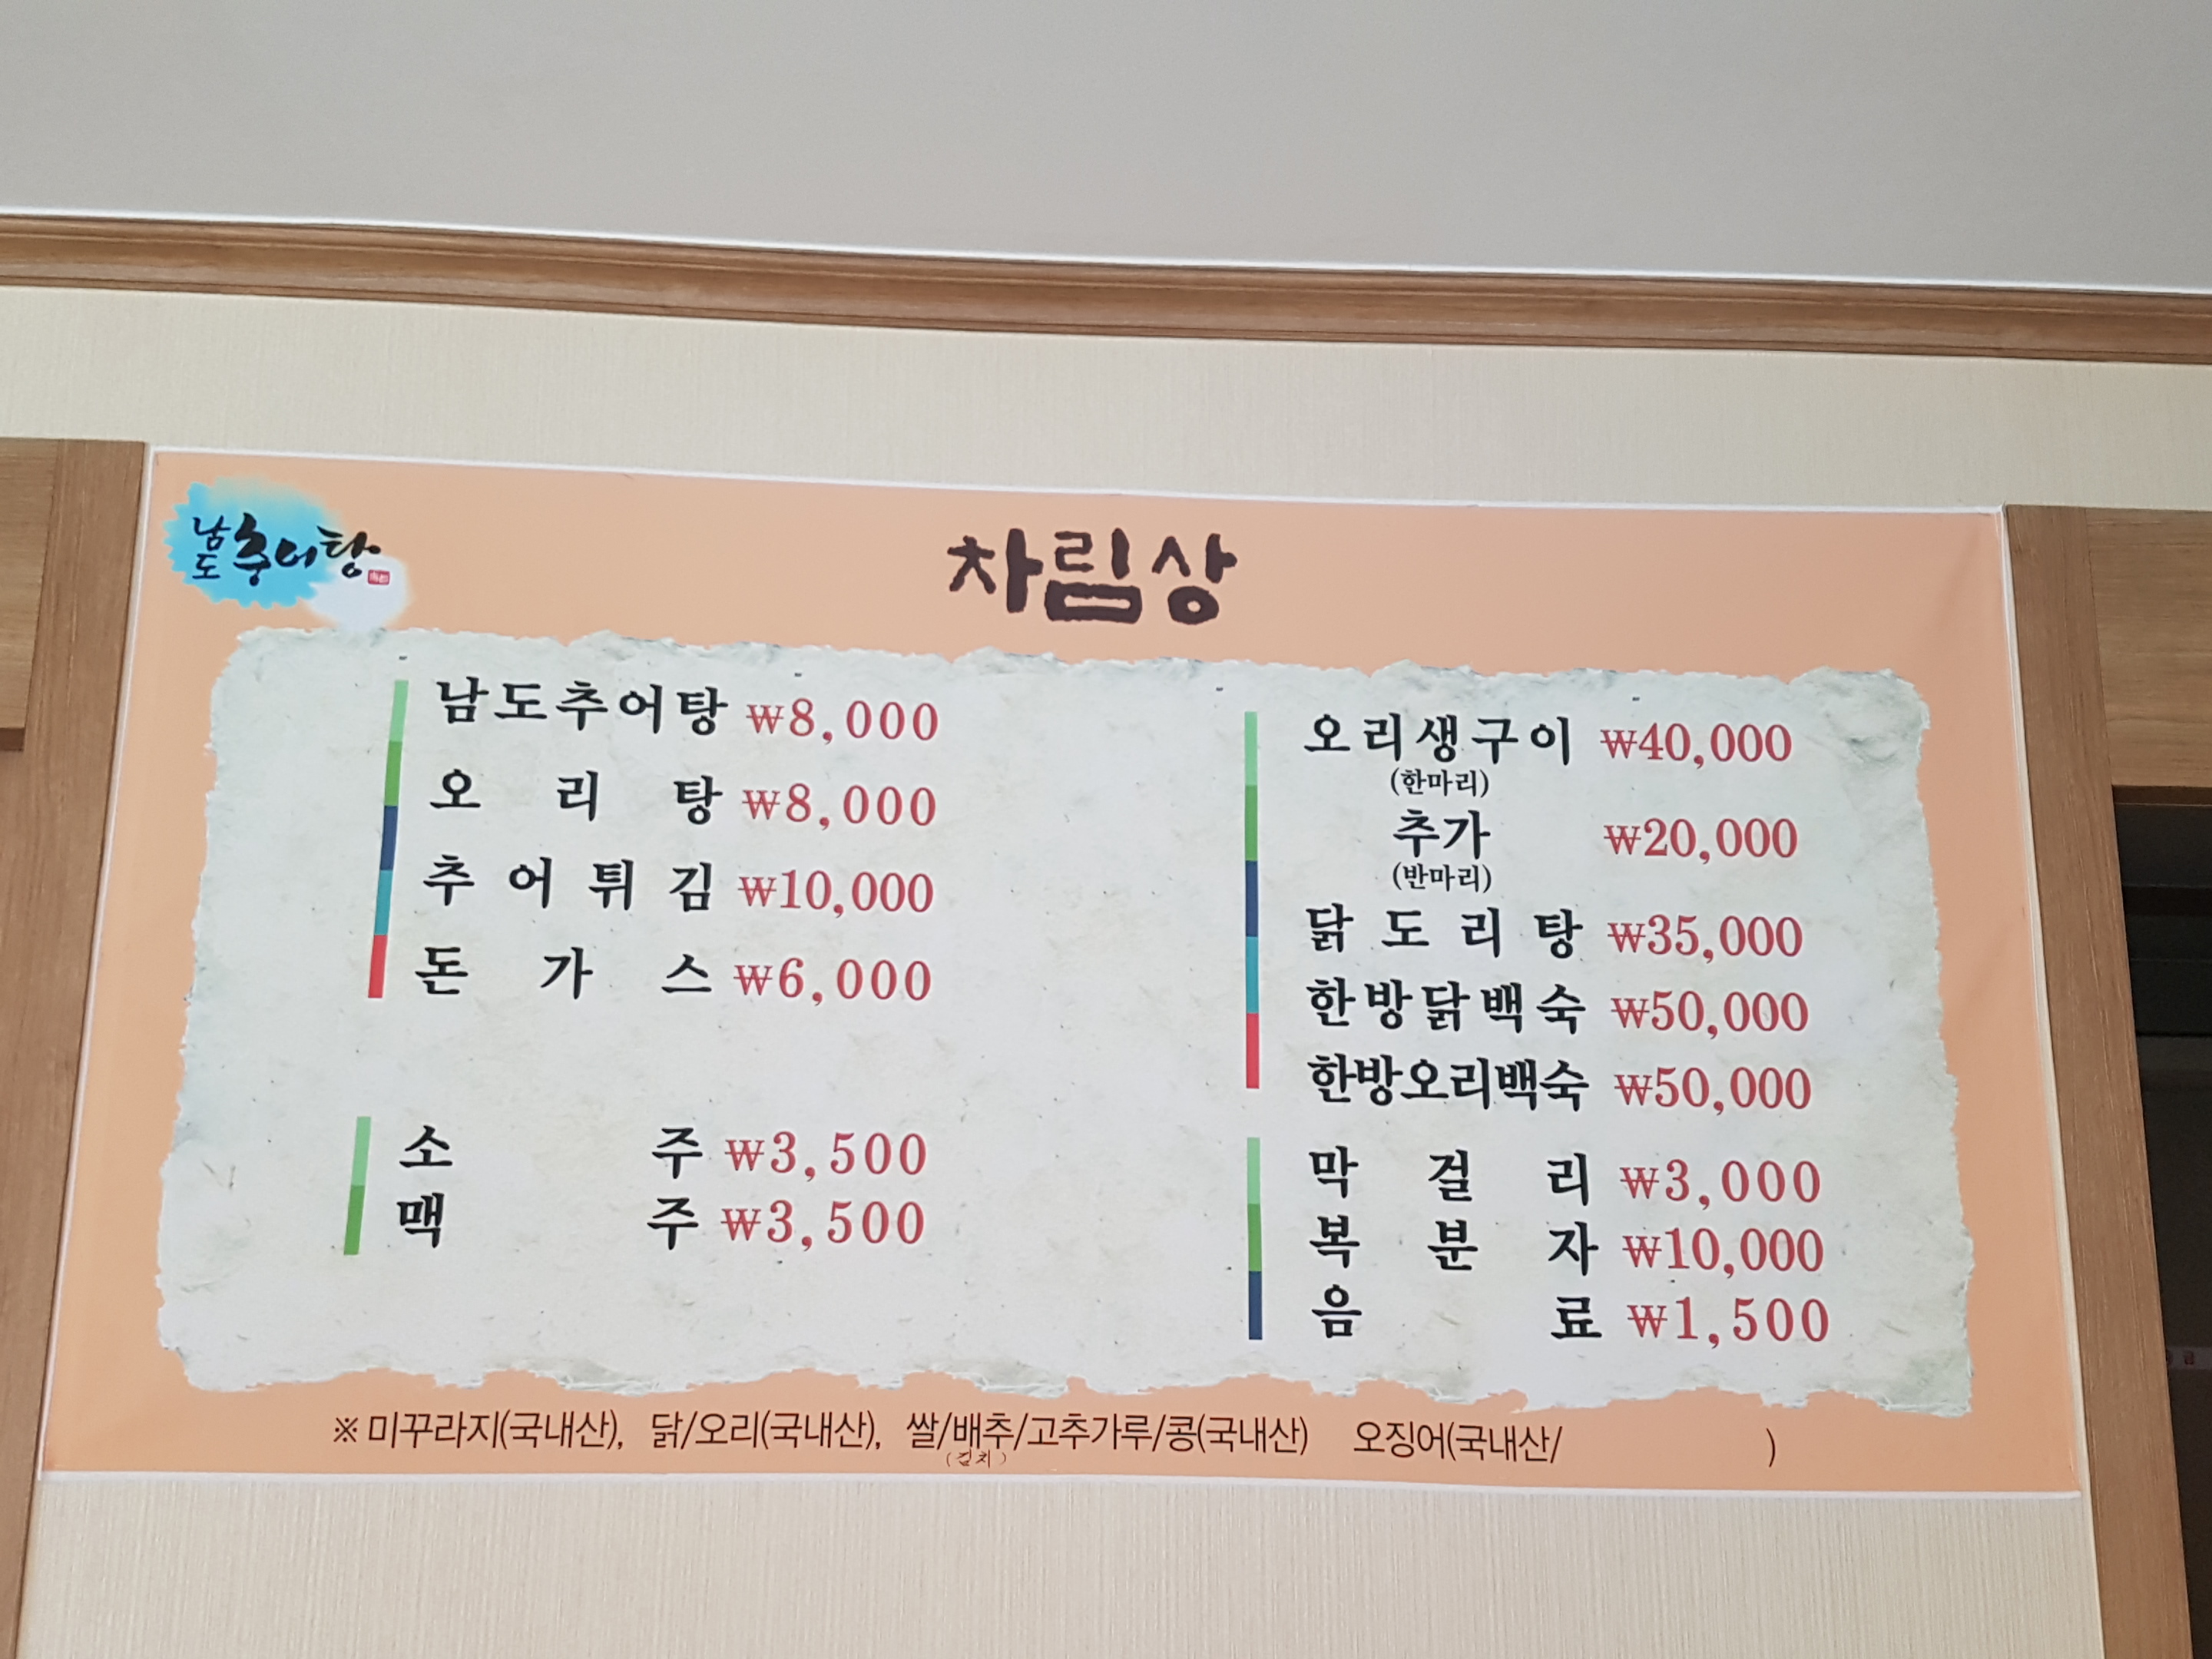 남도 추어탕
차림상
남도추어탕 ₩8,000
오리탕 ₩8,000
추어튀김 ₩10,000
돈가스 ₩6,000
소주 ₩3,500
맥주 ₩3,500
오리생구이 ₩40,000
(한마리)
추가 ₩20,000
(반마리)
닭도리탕 ₩35,000
한방닭백숙 ₩50,000
한방오리백숙 ₩50,000
막걸리 ₩3,000
복분자 ₩10,000
음료 ₩1,500
※ 미꾸라지(국내산), 닭/오리(국내산), 쌀/배추/고추가루/콩(국내산) 오징어(국내산/ )
(김치)